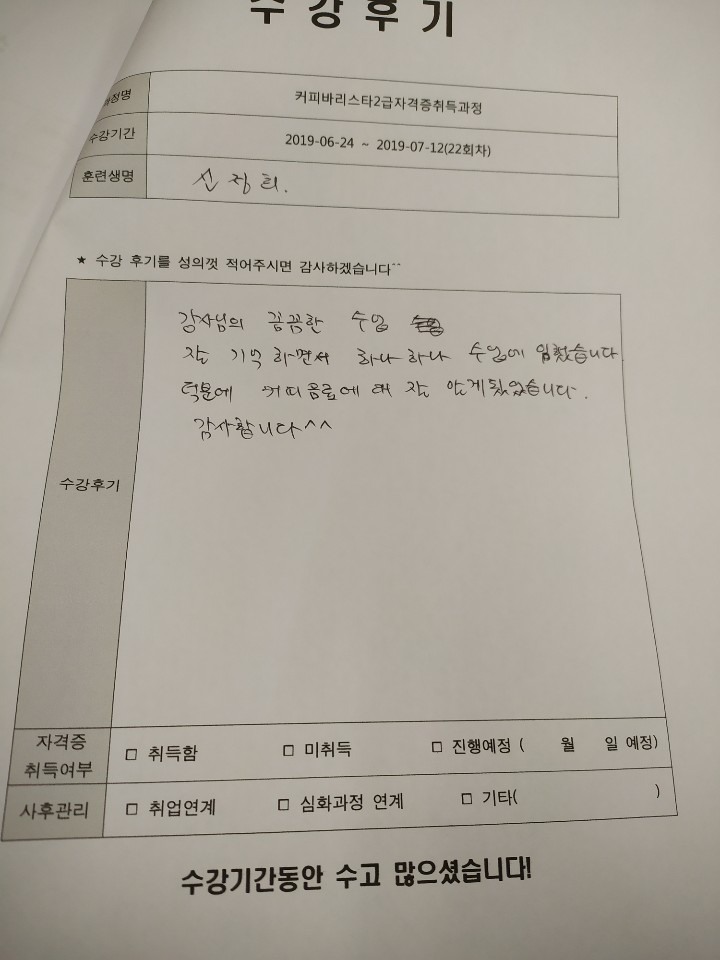 수강후기
과정명
커피바리스타2급자격증취득과정
수강기간
2019-06-24 ~ 2019-07-12(22회차)
훈련생명
신정희.
★ 수강 후기를 성의껏 적어주시면 감사하겠습니다^^
수강후기
강사님의 꼼꼼한 수업
잘 기억하면서 하나하나 수업에 임했습니다
덕분에 커피음료에 대 잘 안게됬었습니다.
감사합니다^^
자격증
취득여부
□ 취득함 □ 미취득 □ 진행예정 ( 월 일 예정)
사후관리
□ 취업연계 □ 심화과정 연계 □ 기타( )
수강기간동안 수고 많으셨습니다!